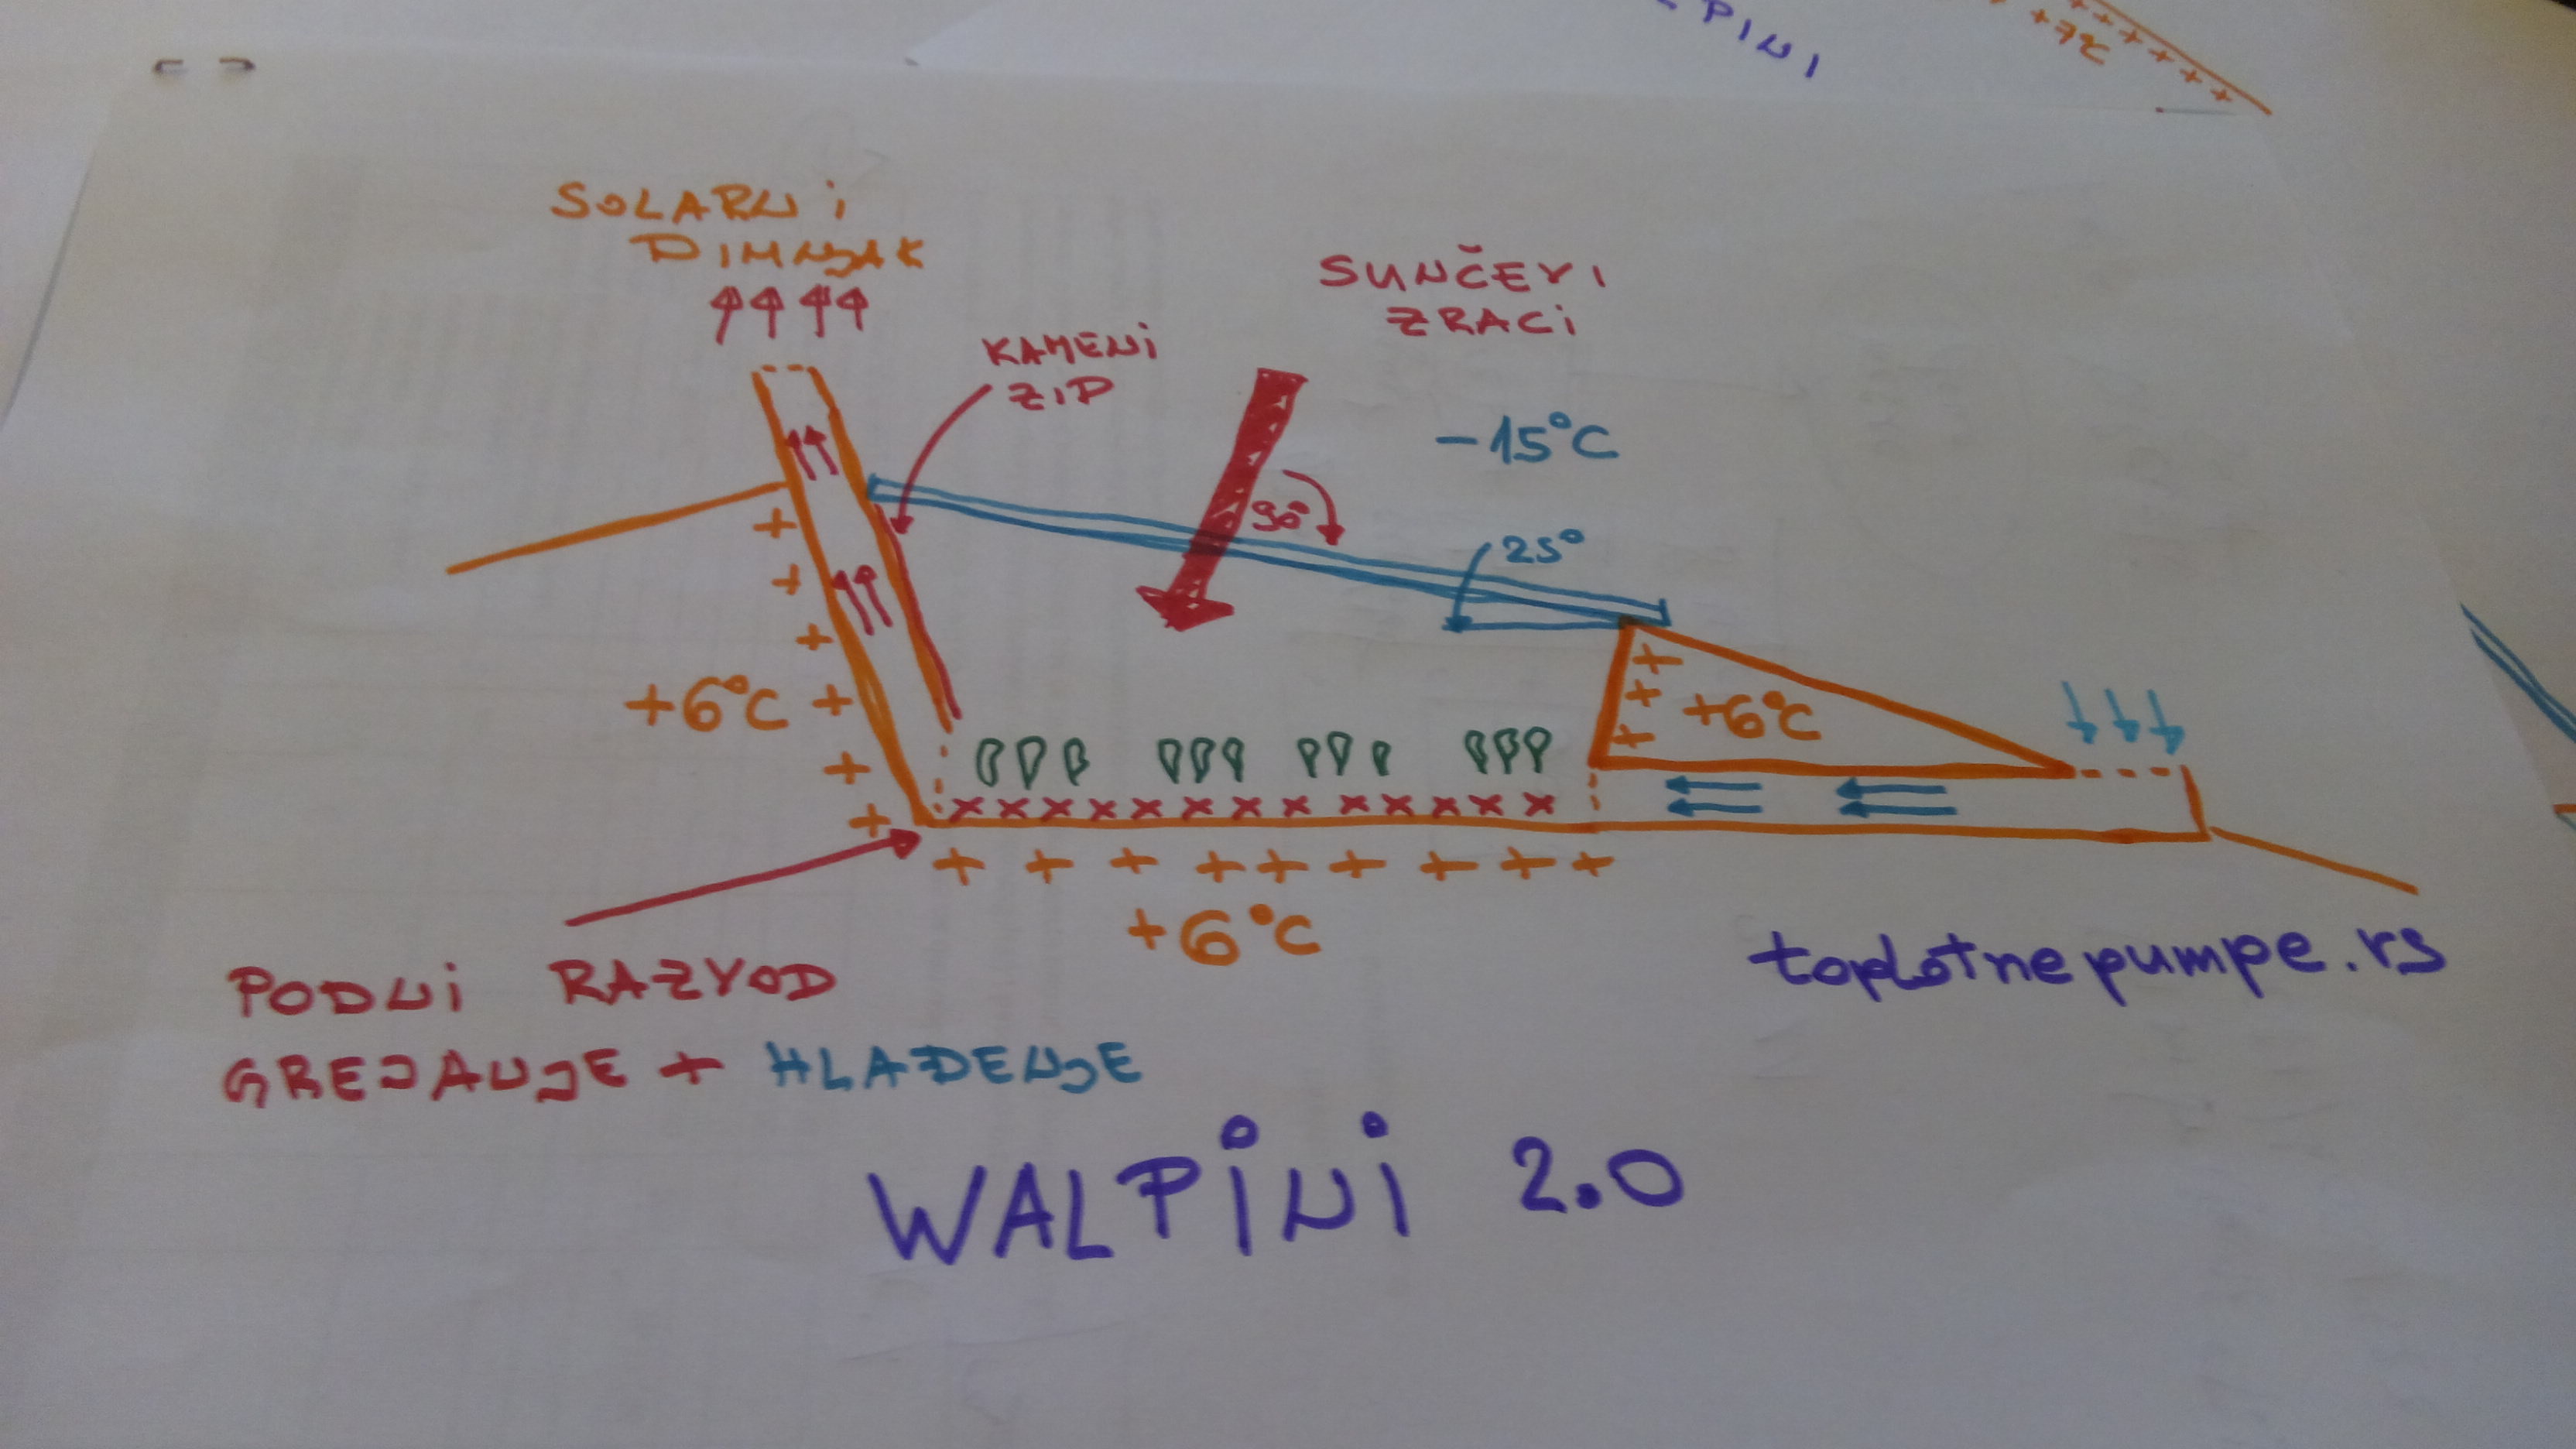 PINI
+7°C
SOLARNi
DIMNJAK
SUNČEVI
ZRACi
KAMENi
ZiD
-15°C
90°
25°
+6°C
+6°C
+6°C
toplotnepumpe.rs
PODNi RAZVOD
GREJANJE + HLAĐENJE
WALPiNi 2.0